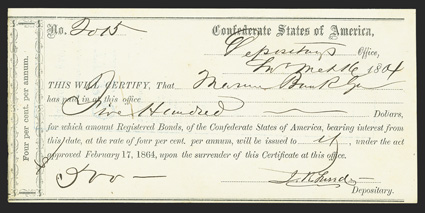 No. 2015
Confederate States of America,
Depositary's Office,
Mch 16, 1864
THIS WILL CERTIFY, That Marine Bank
has paid in at this office
Five Hundred Dollars,
for which amount Registered Bonds, of the Confederate States of America, bearing interest from
this date, at the rate of four per cent. per annum, will be issued to it under the act
approved February 17, 1864, upon the surrender of this Certificate at this office.
$500 —
Depositary.
Four per cent. per annum.